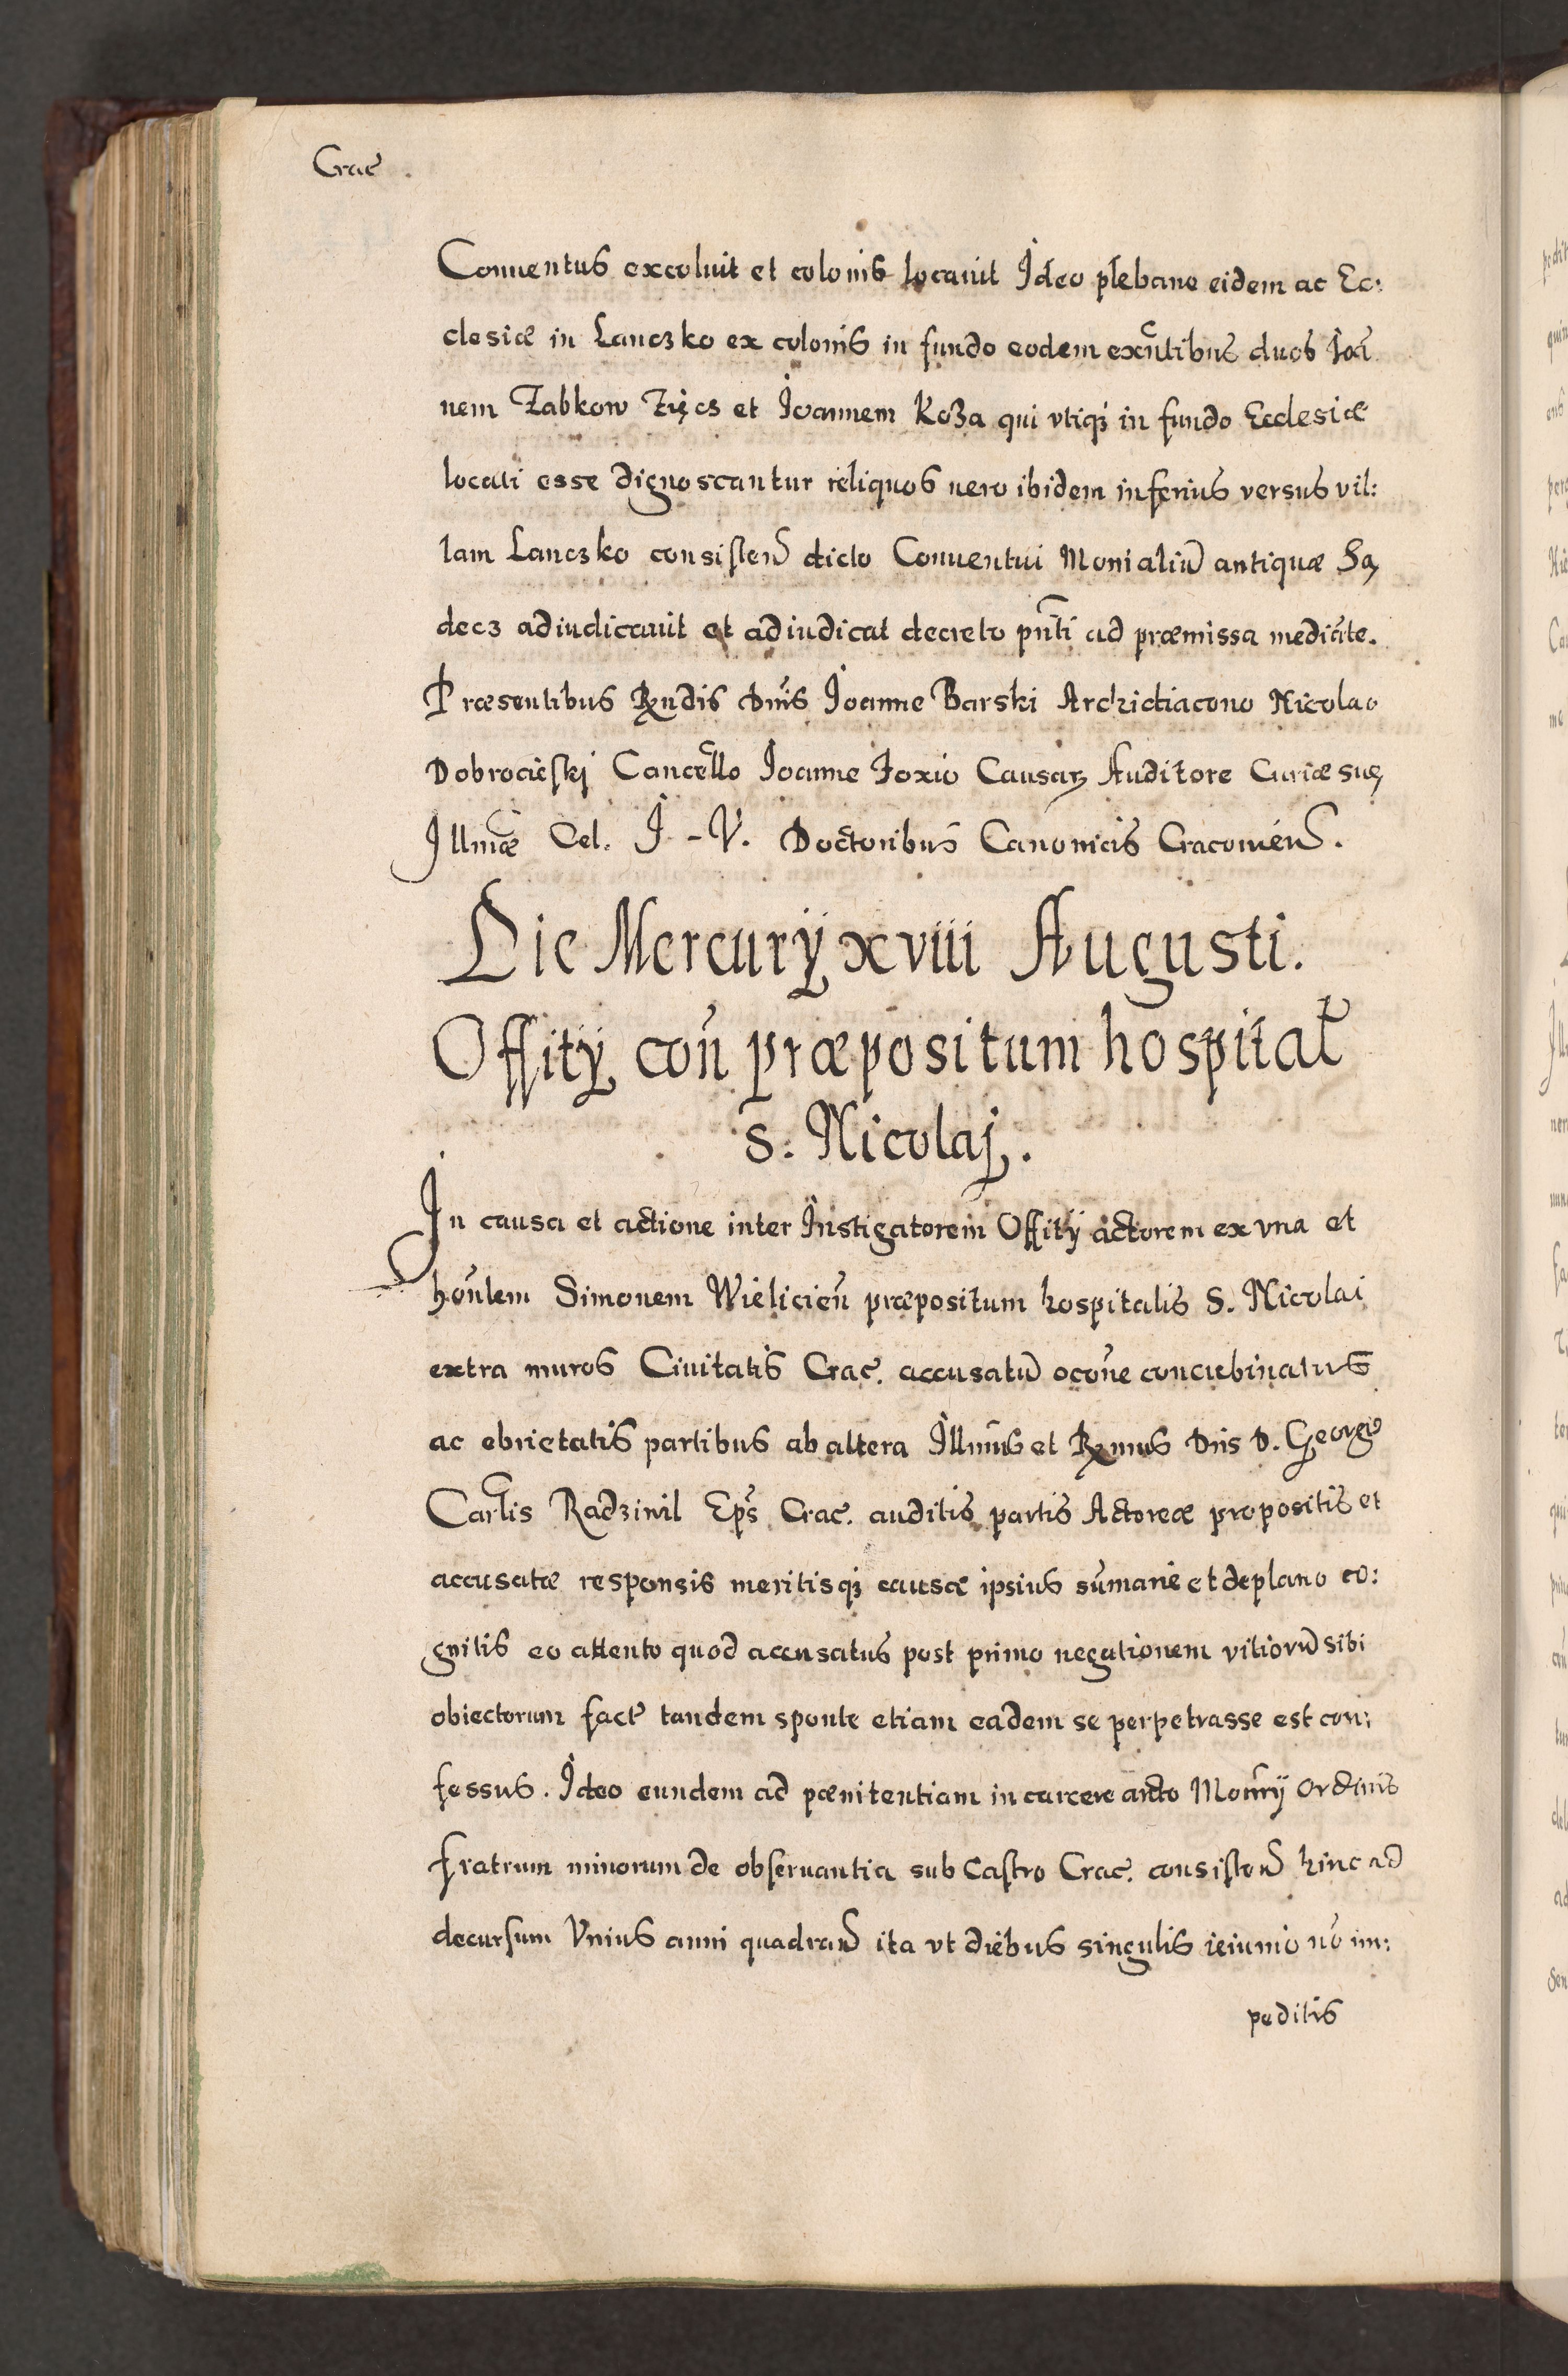 Crac̃
Conuentus excoluit et colonis locauit Ideo plebano eidem ac Ec:
clesiæ in Lanczko ex colonis in fundo eodem exñtibus duos Ioã
nem Zabkow Zięcz et Ioannem Koza qui vtiqȝ in fundo Ecclesiæ
locati esse dignoscantur reliquos uero ibidem inferius versus vil:
lam Lanczko consisteñ dicto Conuentui Monialiũ antiquæ Są
decz adiudicauit et adiudicat decreto pñti ad præmissa mediãte.
Præsentibus Rndis Dnis Ioanne Barski Archidiacono Nicolao
Dobrocieskj Cancello Ioanne Foxio Causarꝝ Auditore Curiæ suę
Illmæ Cel. I - V. Doctoribus Canonicis Cracouieñ.
Die Mercurÿ xviii Augusti.
Offitÿ coñ præpositum hospital̃
S. Nicolaj.
In causa et actione inter Instigatorem Offitij actorem ex vna et
hoñlem Simonem Wielicieñ præpositum hospitalis S. Nicolai
extra muros Ciuitatis Crac̃. accusatũ oc̃one concubinatus
ac ebrietatis partibus ab altera Illmus et Rmus Dns D. Georgiꝰ
Carlis Radziwil Eps̃ Crac̃. auditis partis Actoreæ propositis et
accusatæ responsis meritisqȝ causæ ipsius sũmarie et deplano co:
gnitis eo attento quod accusatus post primo negationem vitiorũ sibi
obiectorum fact̃ tandem sponte etiam eadem se perpetrasse est con:
fessus. Ideo eundem ad pænitentiam in carcere arcto Moñrij Ordinis
fratrum minorum de obseruantia sub Castro Crac̃. consisteñ hinc ad
decursum Vnius anni quadrañ ita vt diebus singulis ieiunio nõ im:
peditis